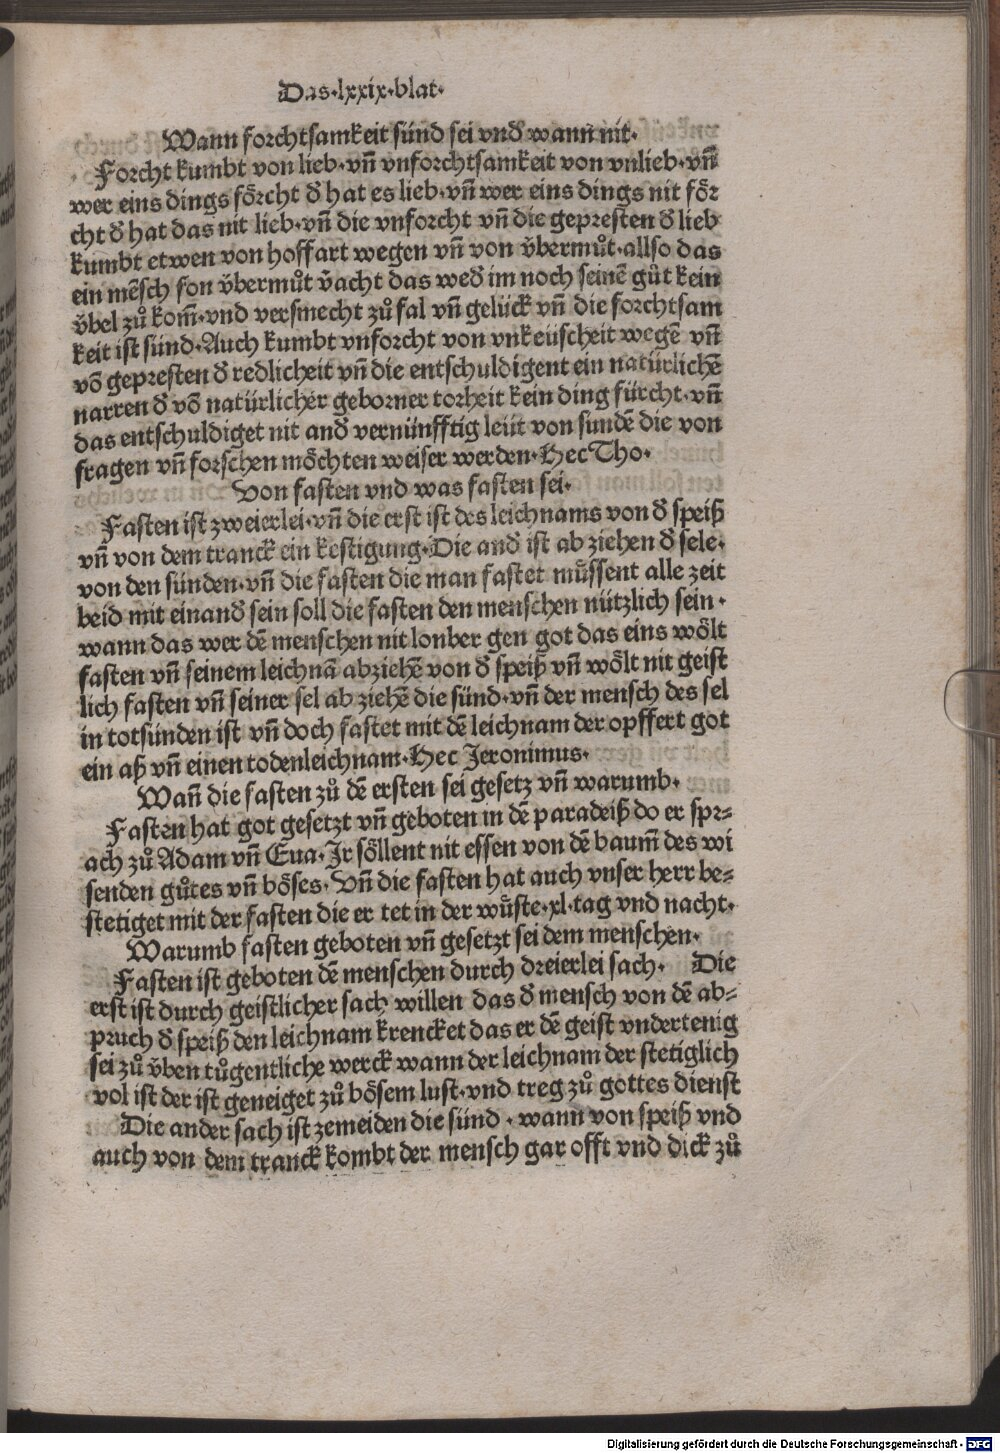 Das·lxxix·blat·
Wann forchtsamkeit sünd sei vnđ wann nit·
Forcht kumbt von lieb·vn̄ vnforchtsamkeit von vnlieb·vn̄
wer eins dings förcht đ hat es lieb·vn̄ wer eins dings nit för
cht đ hat das nit lieb·vn̄ die vnforcht vn̄ die gepresten đ lieb
kumbt etwen von hoffart wegen vn̄ von v̈bermůt·allso das
ein mēsch fon v̈bermůt v̈acht das weđ im noch seinē gůt kein
v̈bel zů kom̄·vnd versmecht zů fal vn̄ gelück vn̄ die forchtsam
keit ist sünd·Auch kumbt vnforcht von vnkeüscheit wegē vn̄
võ gepresten đ redlicheit vn̄ die entschuldigent ein natürlichē
narren đ võ natürlicher geborner torheit kein ding fürcht·vn̄
das entschuldiget nit anđ vernünfftig leüt von sundē die von
fragen vn̄ forschen möchten weiser werden·Hec Tho·
Von fasten vnd was fasten sei·
Fasten ist zweierlei·vn̄ die erst ist des leichnams von đ speiß
vn̄ von dem tranck ein kestigung·Die anđ ist ab ziehen đ sele·
von den sünden·vn̄ die fasten die man fastet müssent alle zeit
beid mit einanđ sein soll die fasten den menschen nützlich sein·
wann das wer dē menschen nit lonber gen got das eins wölt
fasten vn̄ seinem leichnā abziehē von đ speiß vn̄ wölt nit geist
lich fasten vn̄ seiner sel ab ziehē die sünd·vn̄ der mensch des sel
in totsünden ist vn̄ doch fastet mit dē leichnam der opffert got
ein aß vn̄ einen todenleichnam·Hec Jeronimus·
Wan̄ die fasten zů dē ersten sei gesetz vn̄ warumb·
Fasten hat got gesetzt vn̄ geboten in dē paradeiß do er spr-
ach zů Adam vn̄ Eua·Ir söllent nit essen von dē baum̄ des wi
senden gůtes vn̄ böses·Vn̄ die fasten hat auch vnser herr be-
stetiget mit der fasten die er tet in der wüste·xl·tag vnd nacht·
Warumb fasten geboten vn̄ gesetzt sei dem menschen·
Fasten ist geboten dē menschen durch dreierlei sach· Die
erst ist durch geistlicher sach willen das đ mensch von dē ab-
pruch đ speiß den leichnam krencket das er dē geist vndertenig
sei zů v̈ben tůgentliche werck wann der leichnam der stetiglich
vol ist der ist geneiget zů bösem lust·vnd treg zů gottes dienst
Die ander sach ist zemeiden die sünd·wann von speiß vnd
auch von dem tranck kombt der mensch gar offt vnd dick zů
Digitalisierung gefördert durch die Deutsche Forschungsgemeinschaft - DFG